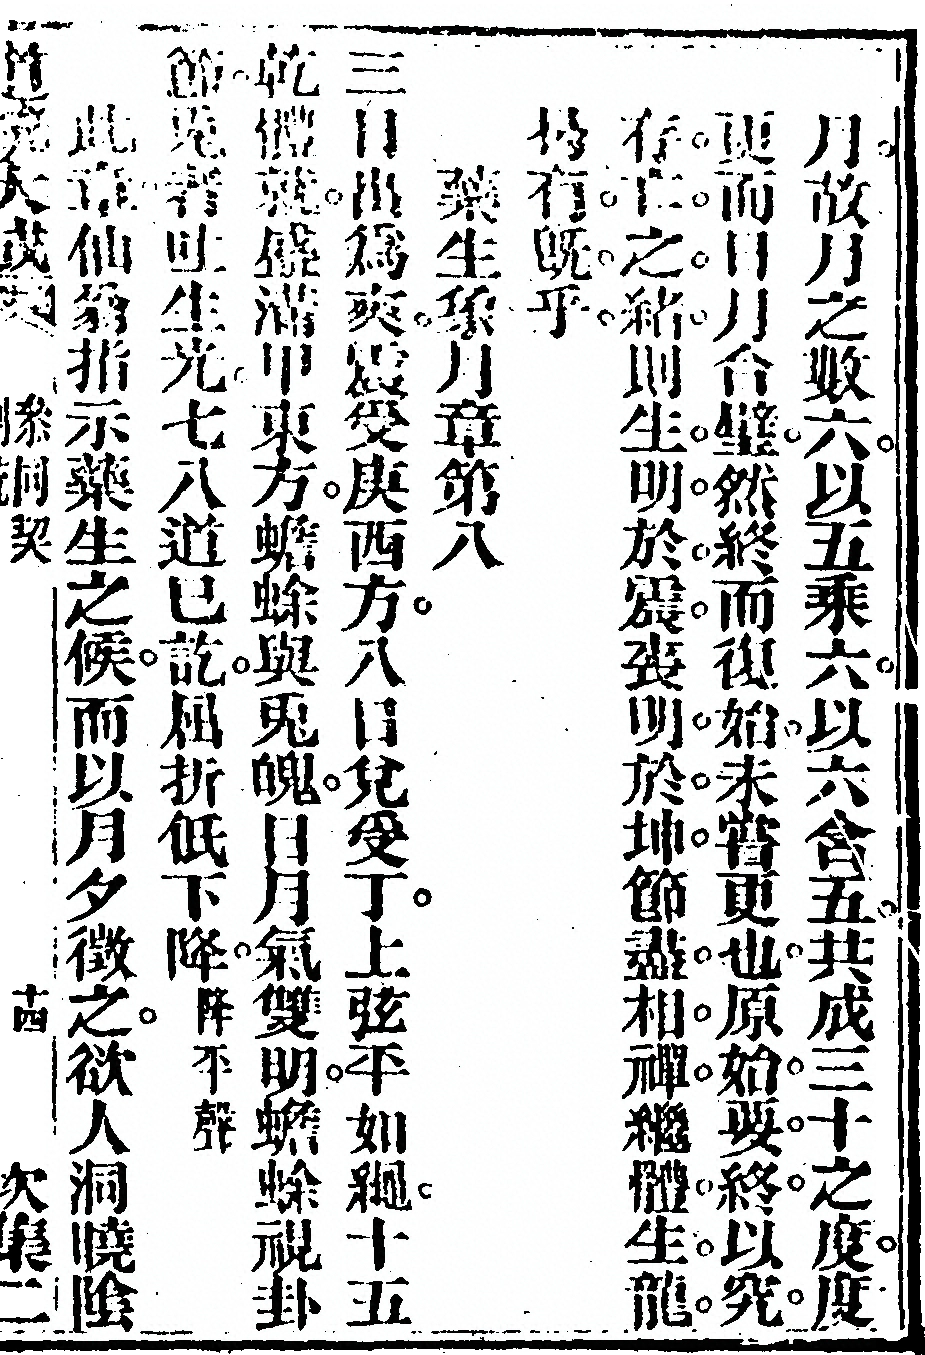 月故月之數六以五乘六以六含五共成三十之度度
更而日月合璧然終而復始未嘗更也原始要終以究
存亡之緒則生明於震喪明於坤節盡相禪繼體生龍
曷有旣乎
藥生象月章第八
三日出爲爽震受庚西方八日兌受丁上弦平如繩十五
乾體就盛滿甲東方蟾蜍與兎魄日月氣雙明蟾蜍視卦
節兎者吐生光七八道巳訖屈折低下降降平聲
此章仙翁指示藥生之候而以月夕徵之欲人洞曉陰
道言大成 參同契 十四 次集二